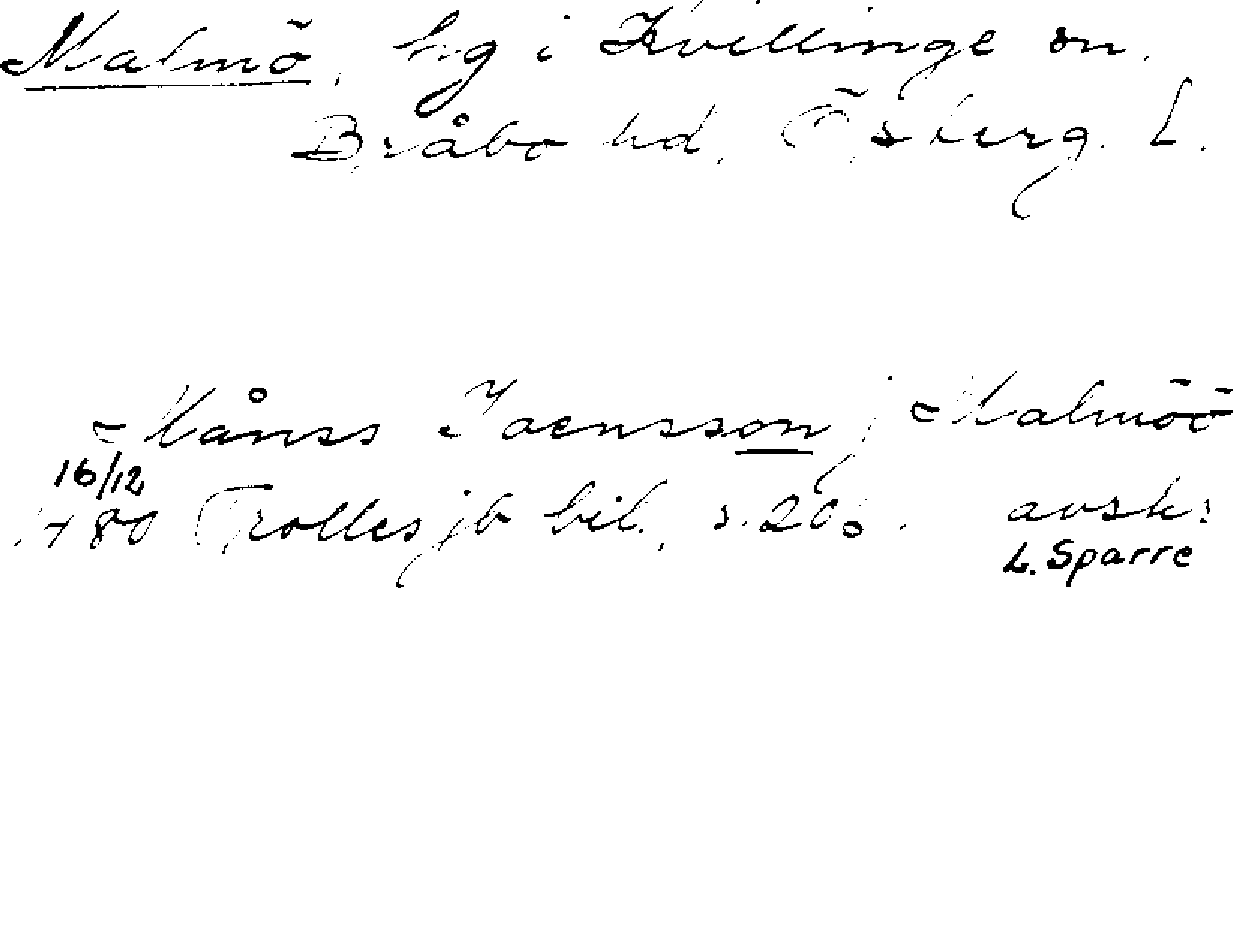 Malmö, hg i Kvillinge sn.
Bråbo hd, Österg. L.
Månss Joensson j Malmöö
16/12
1480 Trolles jb bil., s. 206. avskr
L. Sparre